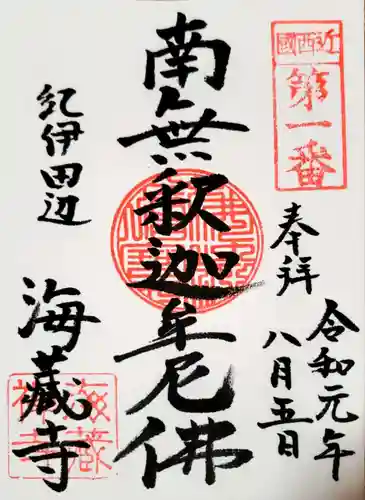 近西国
第一番
奉拝
令和元年
八月五日
南無釈迦牟尼佛
紀伊田辺
海蔵寺